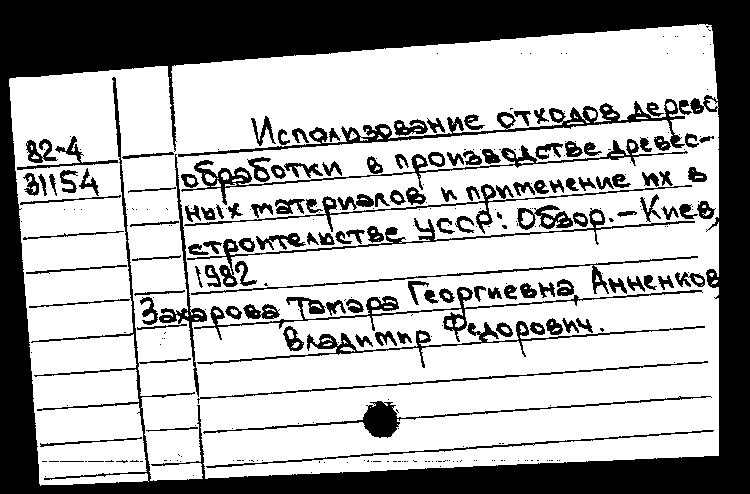 Использование отходов дерево
82-4
обработки в производстве древес-
31154
ных материалов и применение их в
строительстве УССР: Обзор. – Киев,
1982.
Захарова, Тамара Георгиевна, Анненков,
Владимир Федорович.